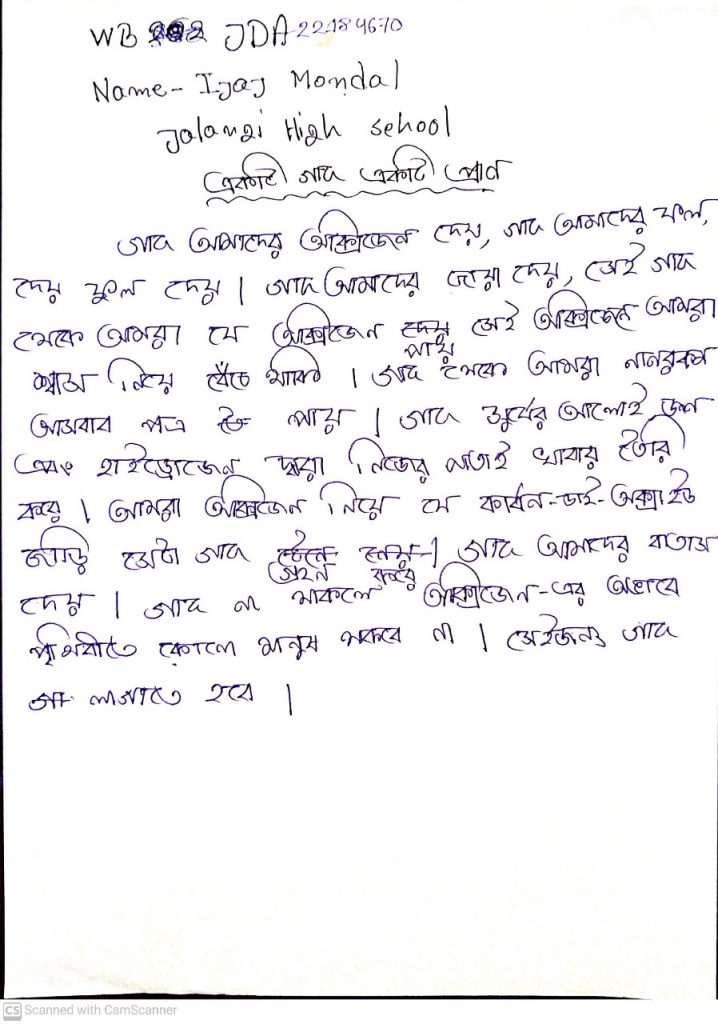 WB JDA-22184670
Name- Ijaj Mondal
Jalangi High School
একটি গাছ একটি প্রাণ
গাছ আমাদের অক্সিজেন দেয়, গাছ আমাদের ফল,
দেয় ফুল দেয়। গাছ আমাদের ছায়া দেয়, সেই গাছ
থেকে আমরা যে অক্সিজেন পায় সেই অক্সিজেন আমরা
শ্বাস নিয়ে বেঁচে থাকি। গাছ থেকে আমরা নানরকম
আসবাব পত্র পায়। গাছ সূর্যের আলোই, জল
এবং হাইড্রোজেন দ্বারা নিজের পাতাই খাবার তৈরি
করে। আমরা অক্সিজেন নিয়ে যে কার্বন-ডাই-অক্সাইড
ছাড়ি সেটা গাছ গ্রহন করে। গাছ আমাদের বাতাস
দেয়। গাছ না থাকলে অক্সিজেন-এর অভাবে
পৃথিবীতে কোনো মানুষ থকবে না। সেইজন্য গাছ
লাগাতে হবে।
CS Scanned with CamScanner